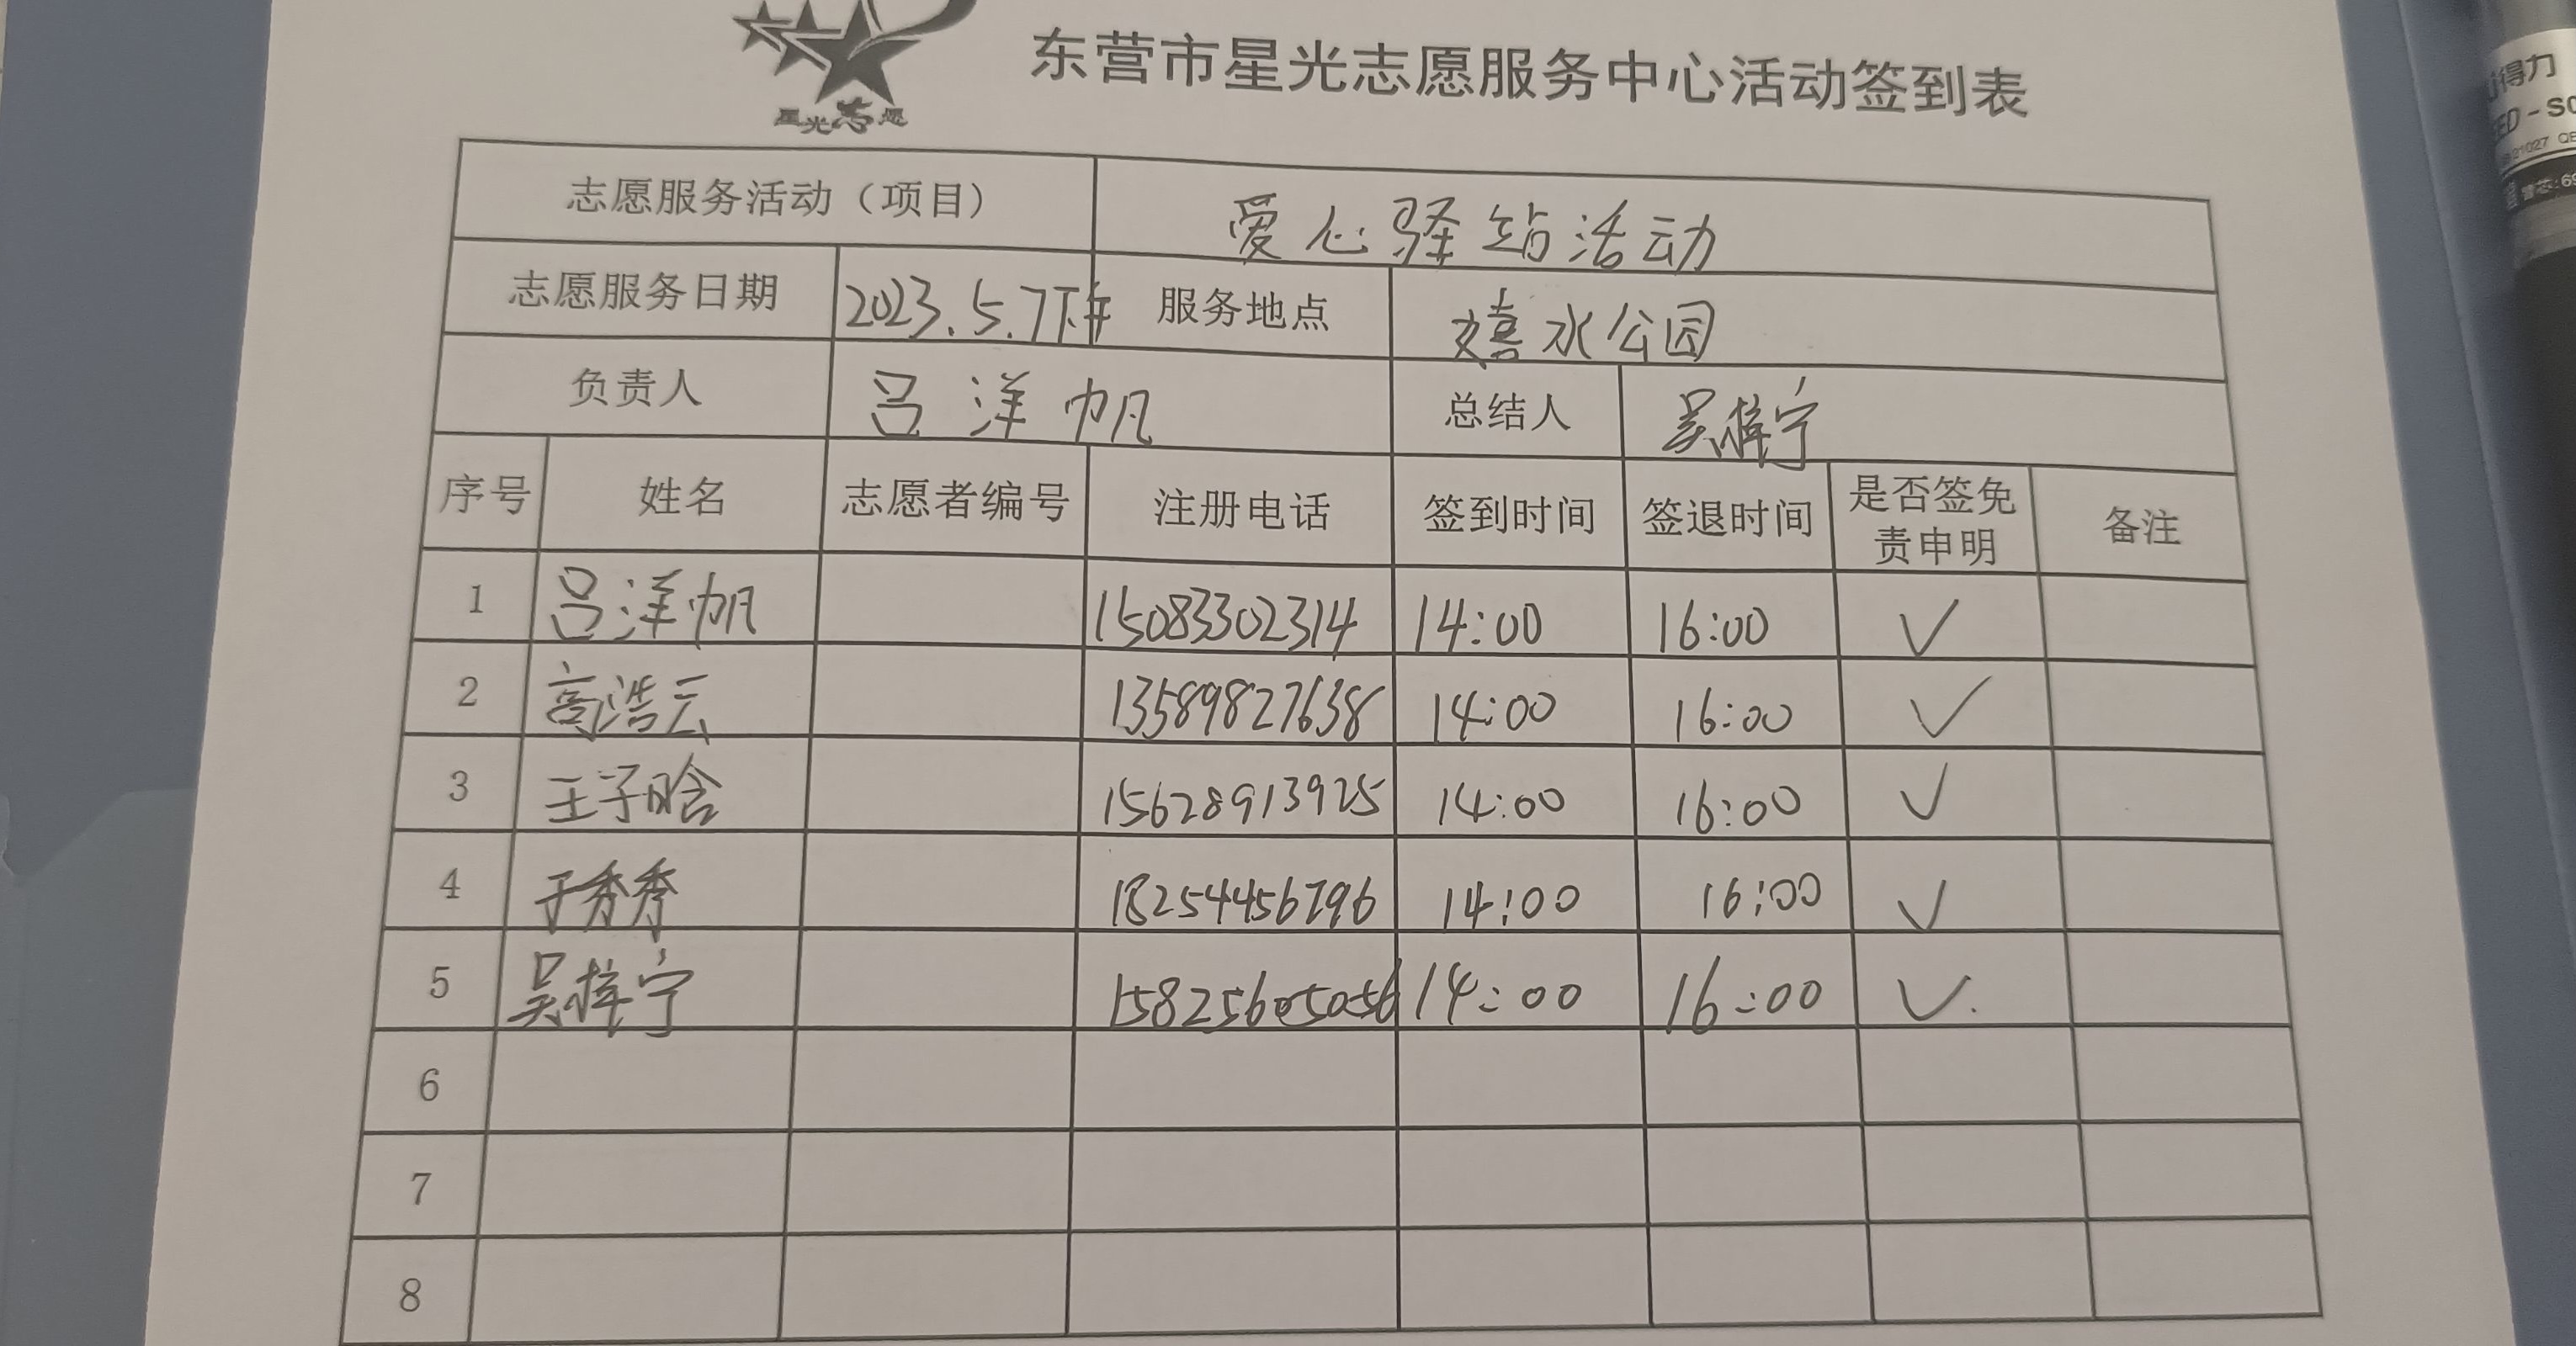 星光志愿
东营市星光志愿服务中心活动签到表
志愿服务活动（项目） 爱心驿站活动
志愿服务日期 2023.5.7下午 服务地点 嬉水公园
负责人 吕洋帆 总结人 吴梓宁
序号 姓名 志愿者编号 注册电话 签到时间 签退时间 是否签免责申明 备注
1 吕洋帆 15083302314 14:00 16:00 ✓
2 高浩云 13589827638 14:00 16:00 ✓
3 王子晗 15628913925 14:00 16:00 ✓
4 于秀秀 18254456796 14:00 16:00 ✓
5 吴梓宁 15825605056 14:00 16:00 ✓
6
7
8
得力